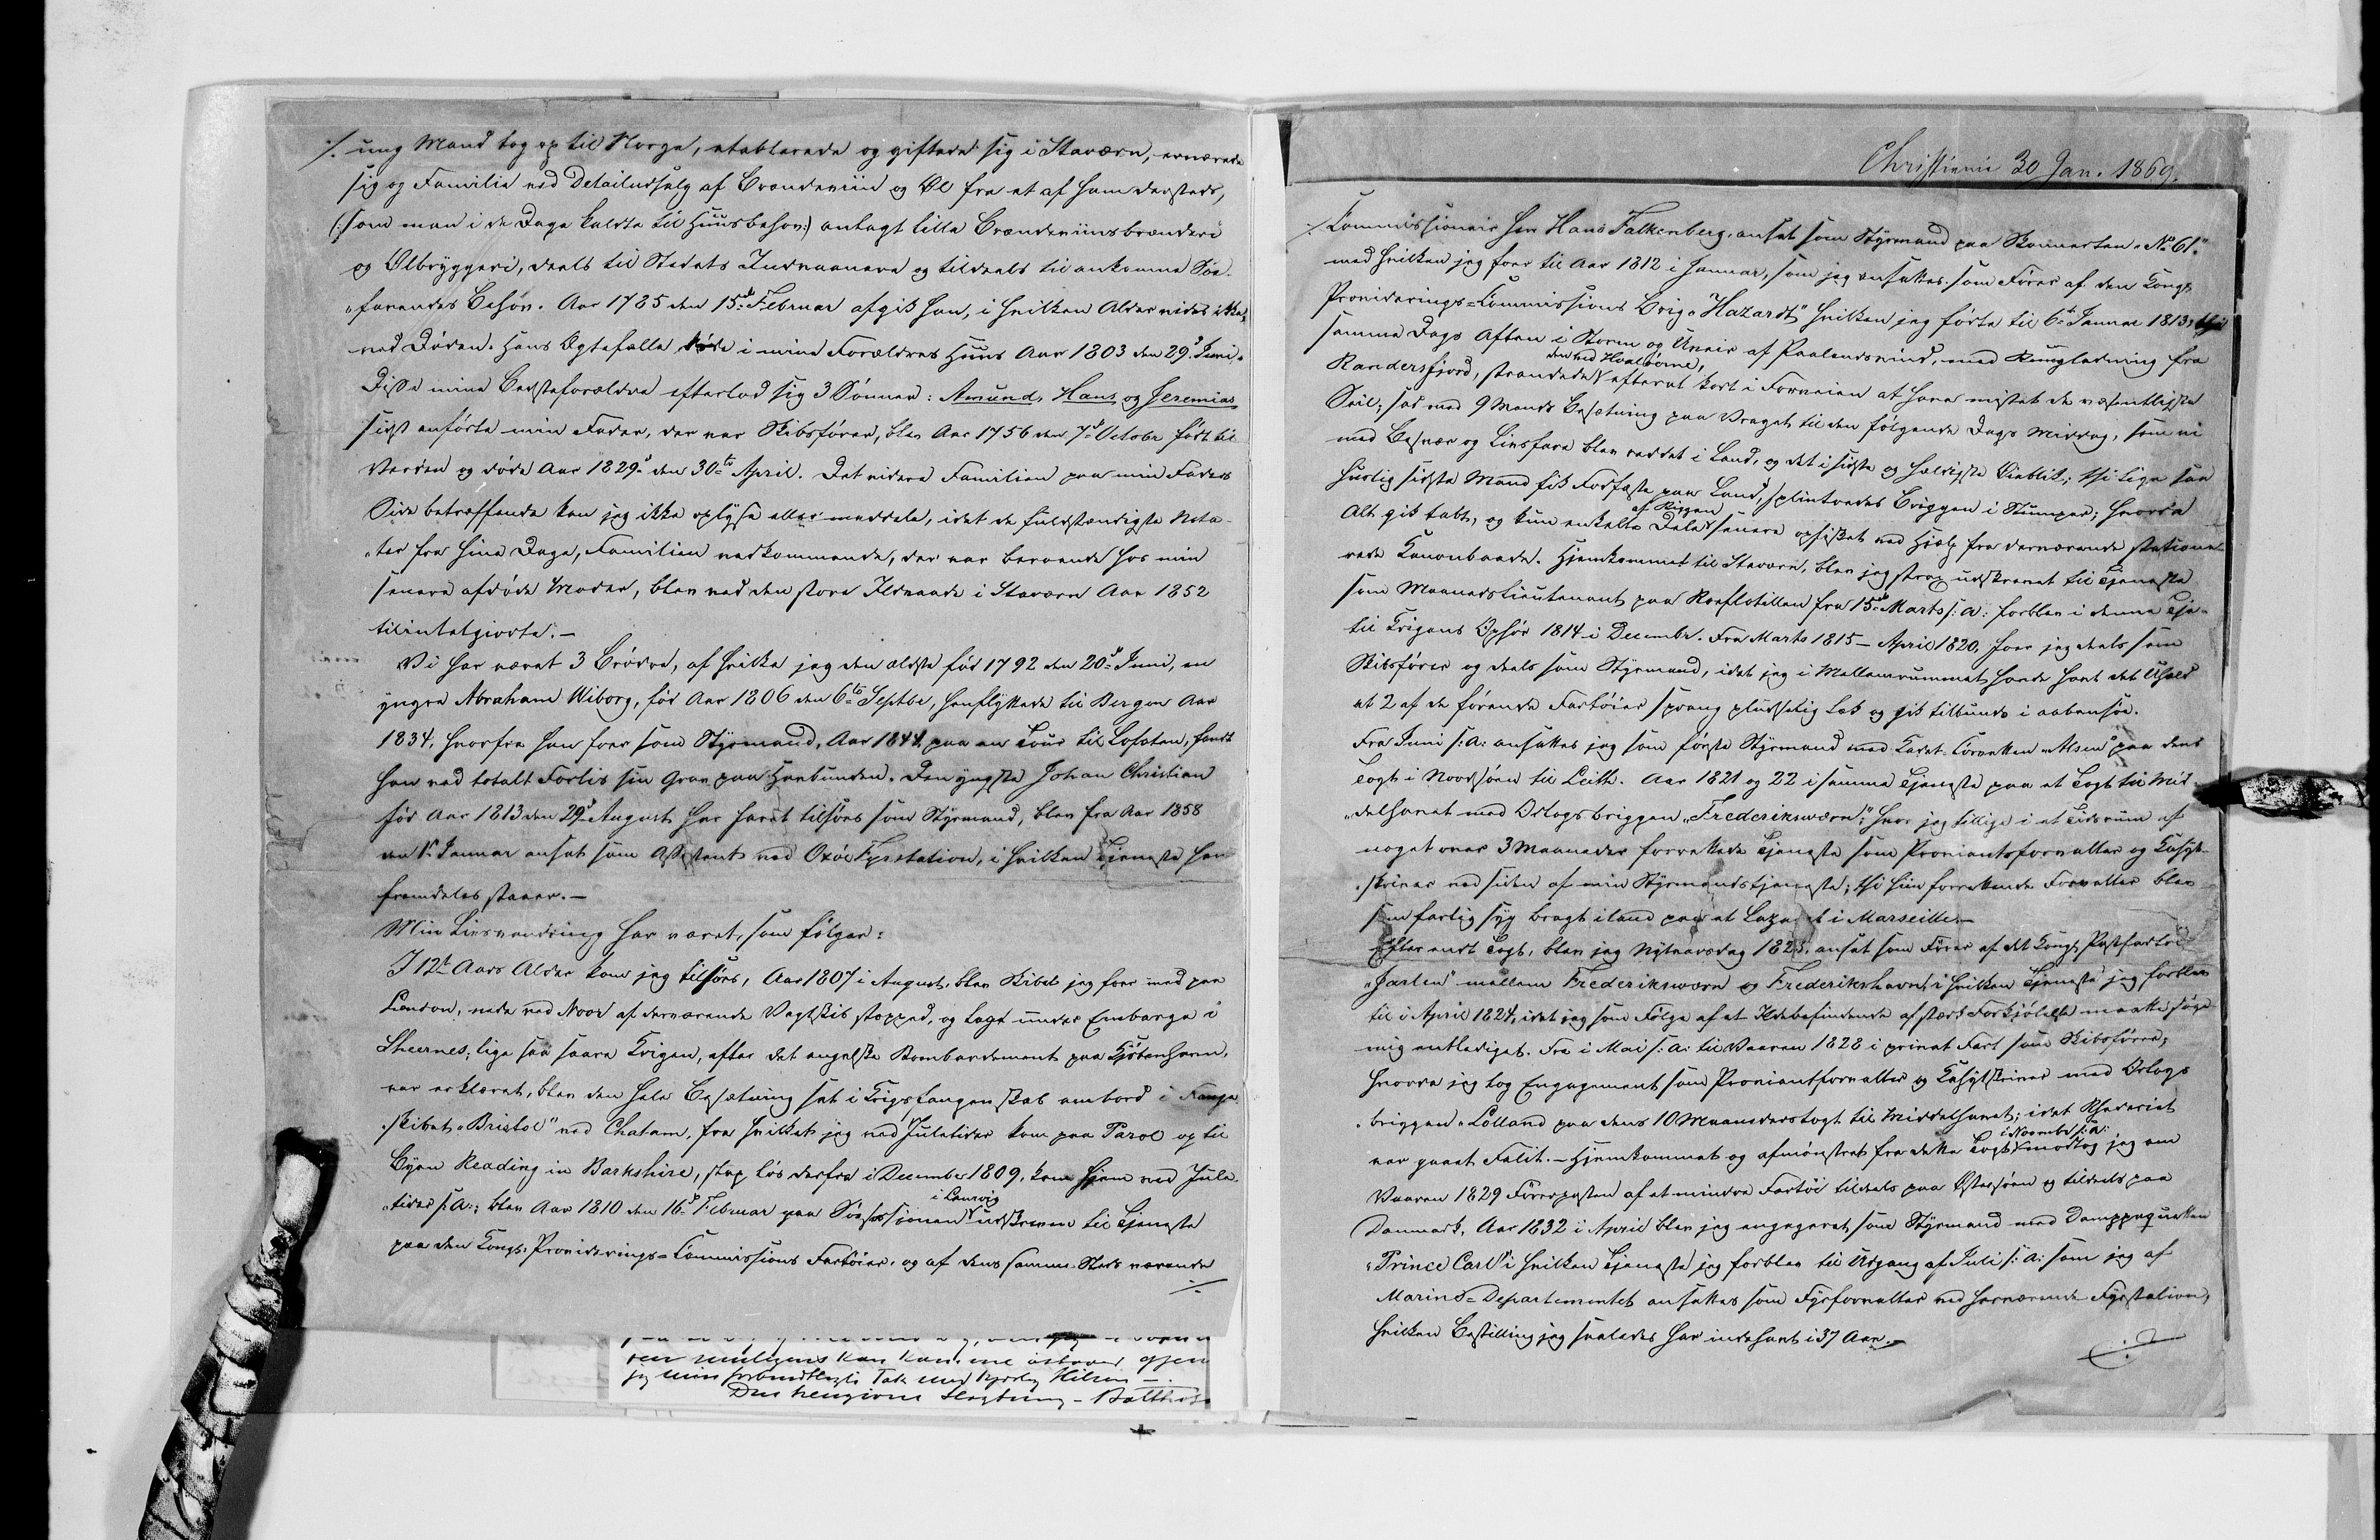 ./. ung Mand tog op til Norge, etablerede og giftede sig i Staværn, ernærede
sig og Familie ved Detailudsalg af Brændeviin og Øl fra et af ham dersteds,
(:som man i de Dage kaldte til Huusbehov:) anlagt lille Brændeviinsbrænderi
og Ølbryggeri, deels til Stedets Indvaanere og tildeels til ankomne Søe-
farendes Behov. Aar 1785 den 15de Februar afgik han, i hvilken Alder vides ikke,
ved Døden. Hans Ægtefælle døde i mine Forældres Huus Aar 1803 den 29d Juni.
Disse mine Bedsteforældre efterlod sig 3 Sønner: Amund, Hans og Jeremias
sidst anførte min Fader, der var Skibsfører, blev Aar 1756 den 7d Octobr født til
Verden og døde Aar 1829 den 30te April. Det videre Familien paa min Faders
Side betræffende kan jeg ikke oplyse eller meddele, idet de fuldstændigste Nota-
ter fra hine Dage, Familien vedkommende, der var beroende hos min
senere afdøde Moder, blev ved den store Ildvaade i Staværn Aar 1852
tilintetgjorte. —
Vi har været 3 Brødre, af hvilke jeg den ældste fød 1792 den 20d Juni, en
yngre Abraham Wiborg, fød Aar 1806 den 6te Septbr, henflyttede til Bergen Aar
1834, hvorfra han foer som Styrmand, Aar 1844 paa en Tour til Lofoten, fandt
han ved totalt Forlis sin Grav paa Havbunden. Den yngste Johan Christian
fød Aar 1813 den 29d August har faret tilsøes som Styrmand, blev fra Aar 1858
en 1ste Januar ansat som Assistent ved Oxøe Fyrstation, i hvilken Tjeneste han
fremdeles staaer. —
Min Livsvandring har været, som følger:
I 12te Aars Alder kom jeg tilsøes, Aar 1807 i August, blev Skibet jeg foer med paa
London, nede ved Noor af derværende Vagtskib stoppet, og lagt under Embargo i
Sheernes; lige saa snare Krigen, efter det engelske Bombardement paa Kjøbenhavn,
var erklæret, blev den hele Besætning sat i Krigsfangenskab ombord i Fange-
skibet "Bristol" ved Chatam, fra hvilket jeg ved Juletider kom paa Parol op til
Byen Reading in Barkshire, slap løs derfra i December 1809, kom hjem ved Jule-
tider s: A:; blev Aar 1810 den 16d Februar paa Søesessionen i Laurvig udskreven til Tjeneste
paa den Kongl: Providerings-Commissions Fartøier, og af dens samme Steds værende
./.
jeg min forbindtligste Tak med Hilsen —
Christiania 30 Jan. 1869.
./. Commissionair Herr Hans Falkenberg, ansat som Styrmand paa Skonnerten "No 61."
med hvilken jeg foer til Aar 1812 i Januar, som jeg ansattes som Fører af den Kongl:
Providerings-Commissions Brig "Hazardt" hvilken jeg førte til 6te Januar 1813, thi
samme Dags Aften i Storm og Uveir af Paalandsvind, med Rugladning fra
Randersfjord, strandede den ved Hvaløerne, efterat kort i Forveien at have mistet de væsentligste
Seil; sad med 9 Mands Besætning paa Vraget til den følgende Dags Middag, som vi
med Besvær og Livsfare blev reddet i Land, og det i sidste og heldigste Øieblik; thi lige saa
hurtig sidste Mand fik Fodfæste paa Land, splintredes Briggen i Stumper; hvorved
Alt gik tabt, og kun enkelte Dele af Riggen senere opfisket ved Hjælp fra derværende statione-
rede Kanonbaade. Hjemkommet til Staværn, blev jeg strax udskrevet til Tjeneste
som Maanedslieutenant paa Roeflotillen fra 15de Marts s: A: forblev i denne Tje-
til Krigens Ophør 1814 i Decembr. Fra Marts 1815 — April 1820, foer jeg deels som
Skibsfører og deels som Styrmand, idet jeg i Mellemrummet havde havt det Uheld
at 2 af de førende Fartøier sprang pludselig læk og gik tilbunds i aabensøe.
Fra Juni s: A: ansattes jeg som første Styrmand med Cadet-Corvetten "Alsen" paa dens
Togt i Noordsøen til Leith. Aar 1821 og 22 i samme Tjeneste paa et Togt til Mid-
delhavet med Orlogsbriggen "Frederiksværn", hvor jeg tillige i et Tidsrum af
noget over 3 Maaneder forrettede Tjeneste som Proviantforvalter og Kahyt-
skriver ved siden af min Styrmandstjeneste; thi hiin forrettende Forvalter blev
som farlig syg bragt iland paa et Lazaret i Marseille. —
Efter endt Togt, blev jeg Nytaarsdag 1823, ansat som Fører af det Kongl: Postfartøi
"Jarlen" mellem Frederiksværn og Frederikshavn, i hvilken Tjeneste jeg forblev
til i April 1824, idet jeg som Følge af et Ildebefindende af stærk Forkjølelse maatte søge
mig entlediget. Fra i Mai s: A: til Vaaren 1828 i privat Fart som Skibsfører;
hvorra jeg tog Engagement som Proviantforvalter og Kahytskriver med Orlogs-
briggen "Lolland paa dens 10 Maanederstogt til Middelhavet; idet Rhederiet
var gaaet Falit. — Hjemkommet og afmønstret fra dette Togt i Novembr s: A: modtog jeg om
Vaaren 1829 Førerposten af et mindre Fartøi tildeels paa Østersøen og tildeels paa
Danmark. Aar 1832 i April blev jeg engageret som Styrmand med Damppaquetten
"Prince Carl" i hvilken Tjeneste jeg forblev til Udgang af Juli s: A: som jeg af
Marine-Departementet ansattes som Fyrforvalter ved herværende Fyrstation,
hvilken Bestilling jeg saaledes har indehavt i 37 Aar. —
./.